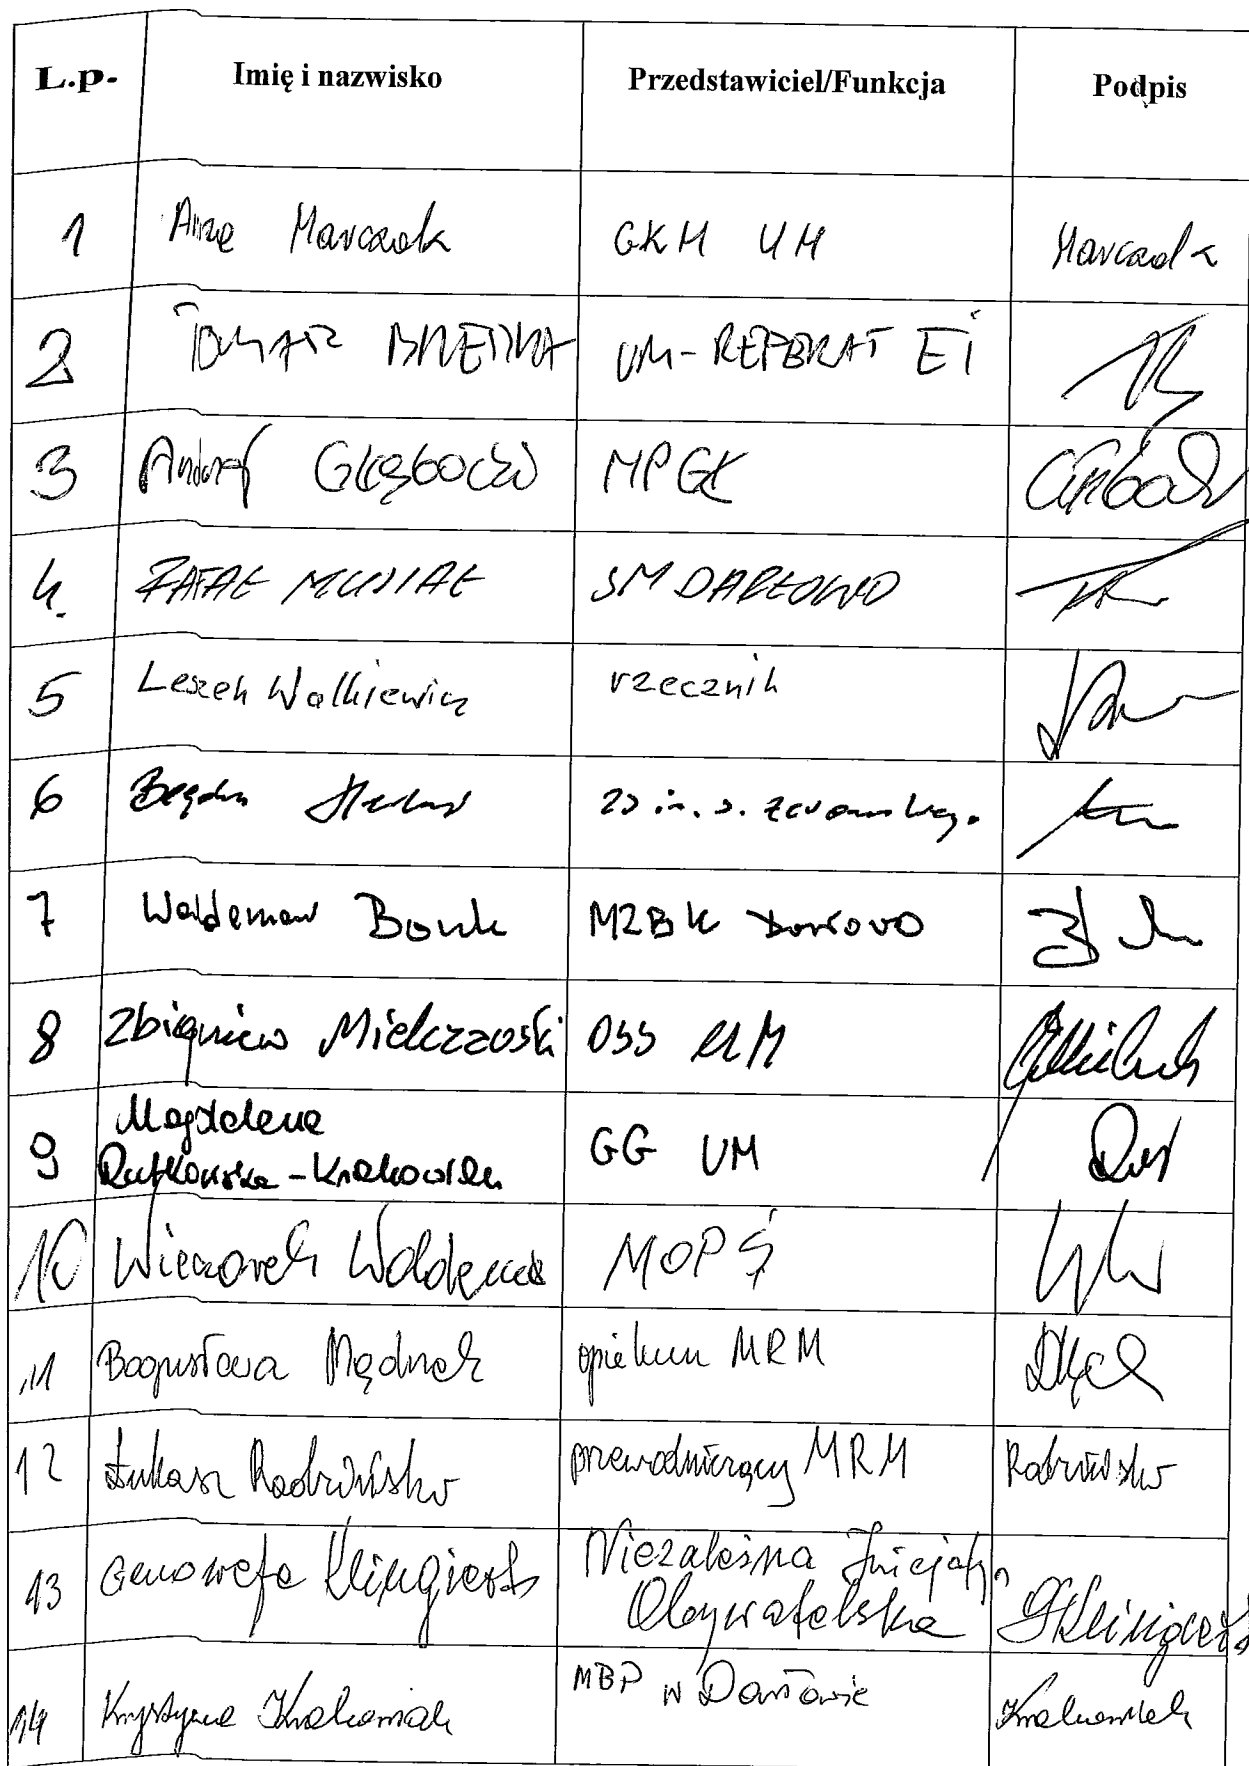 L.p. Imię i nazwisko Przedstawiciel/Funkcja Podpis
1 Marczak GKM UM Marczak
2 UM-REFERAT EI
3 Andrzej Głębocki MPGK
4. RAFAŁ MUSIAŁ SM DARŁOWO
5 Leszek Walkiewicz rzecznik
6
7 Waldemar Bonk MZBK Darłowo
8 Zbigniew Mielczarski OSS UM
9 Magdalena
Rutkowska-Krakowiak GG UM
10 Wieczorek Waldemar MOPS
11 Bogusława Mądrak opiekun MRM
12 Łukasz Radziński przewodniczący MRM Radziński
13 Genowefa Niezależna Inicjatywa
Obywatelska
14 Krystyna Krakowiak MBP w Darłowie Krakowiak